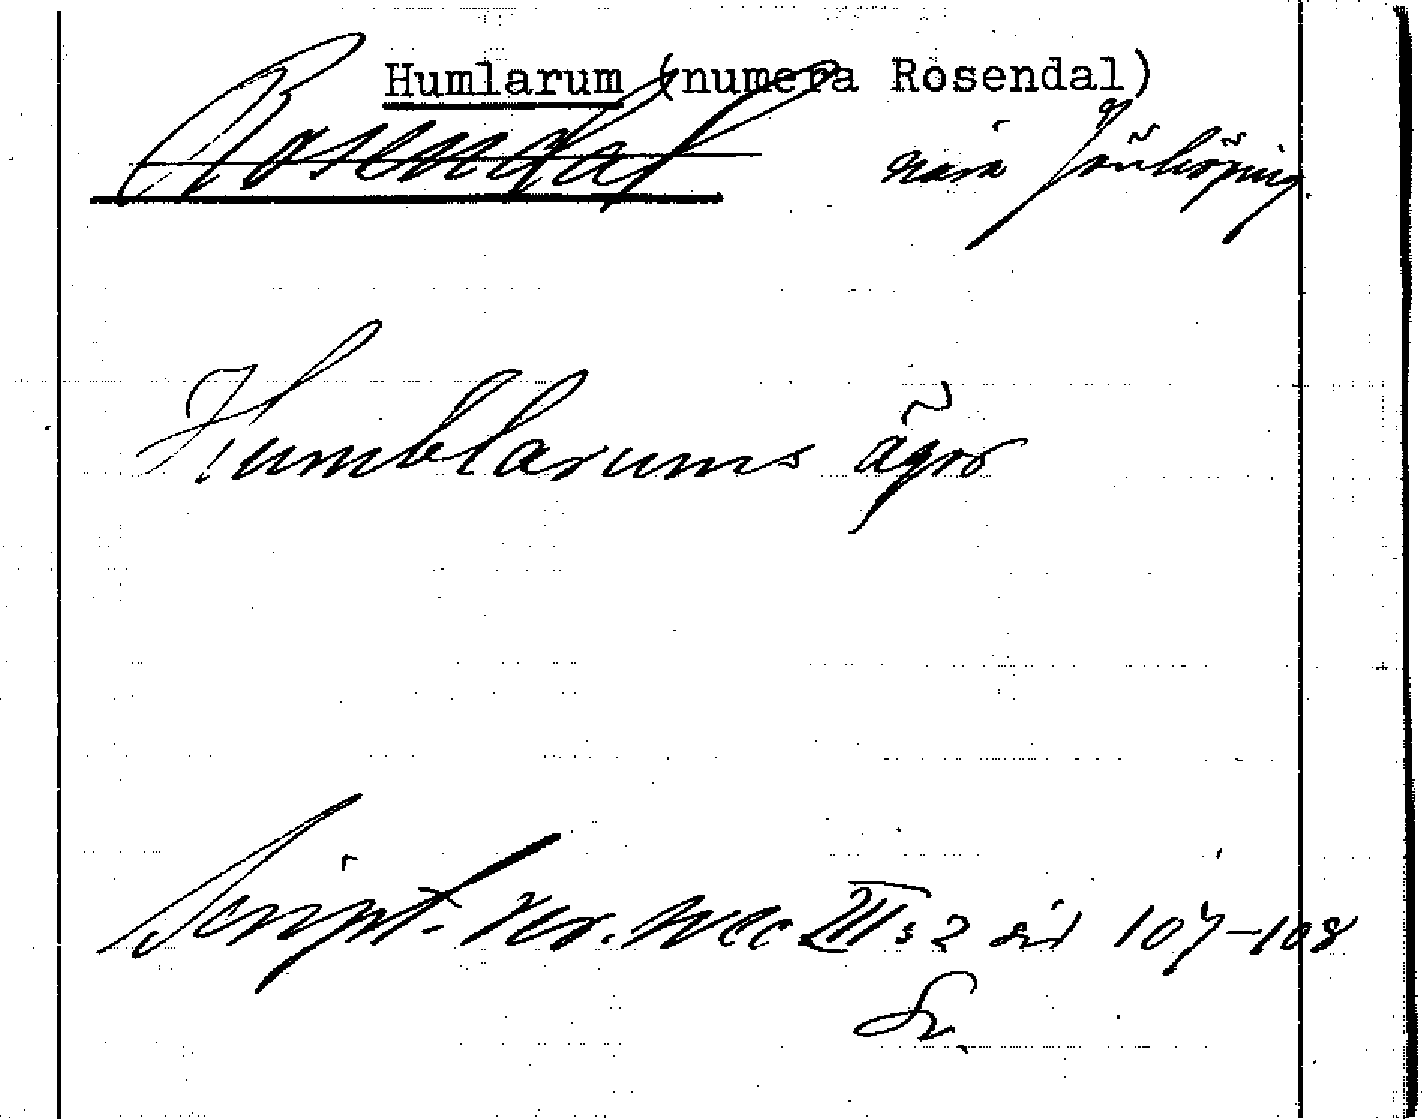 Humlarum (numera Rosendal)
Rosendal nära Jönköping
Humblarums ägor
Script. rer. svec III: 2 sid 107-108
Sv.